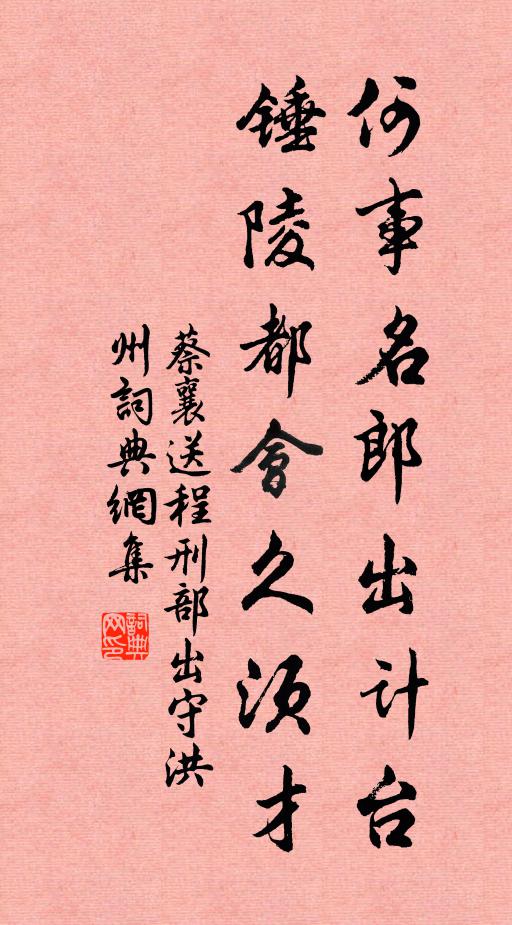 何事名郎出計台
錘陵都會久須才
蔡襄送程刑部出守洪
州詞典網集
詞典网印